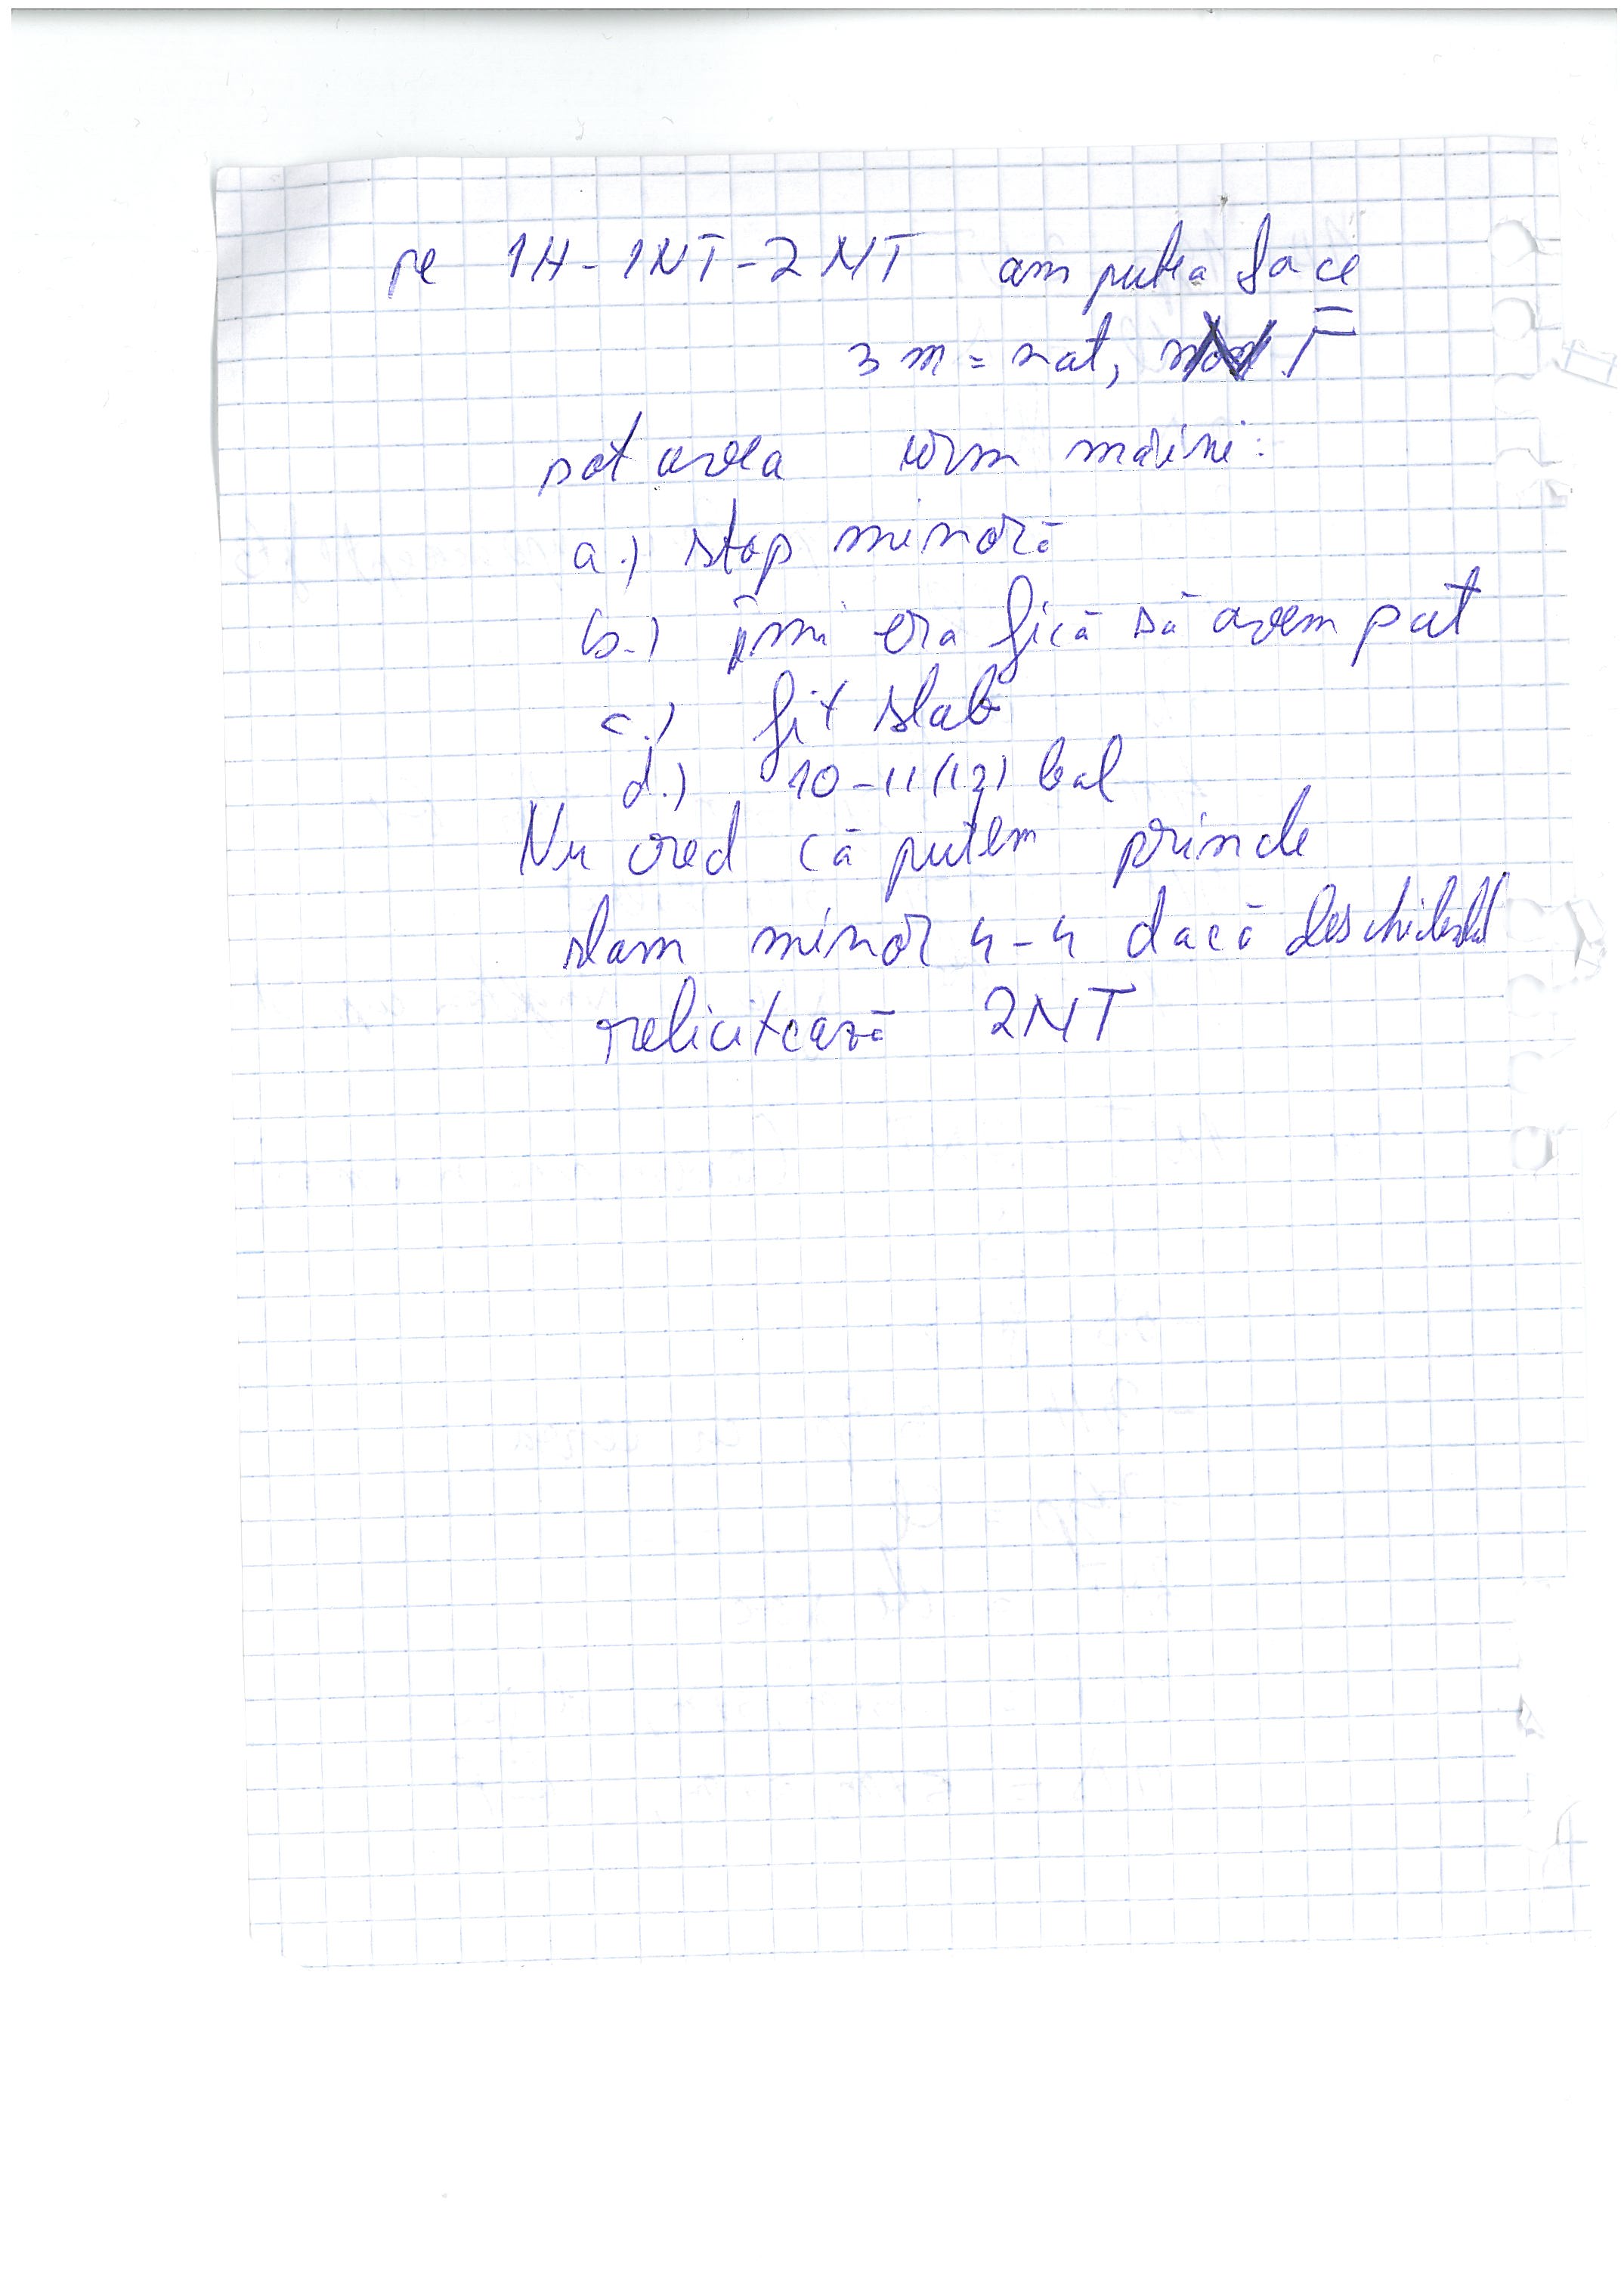 pe 1H-1NT-2NT am putea face
3m = nat, NF
pot avea urm mâini:
a.) stop minoră
b.) îmi era fică să avem pat
c.) fit slab
d.) 10-11(12) bal
Nu cred că putem prinde
slam minor 4-4 dacă deschidentul
relicitează 2NT